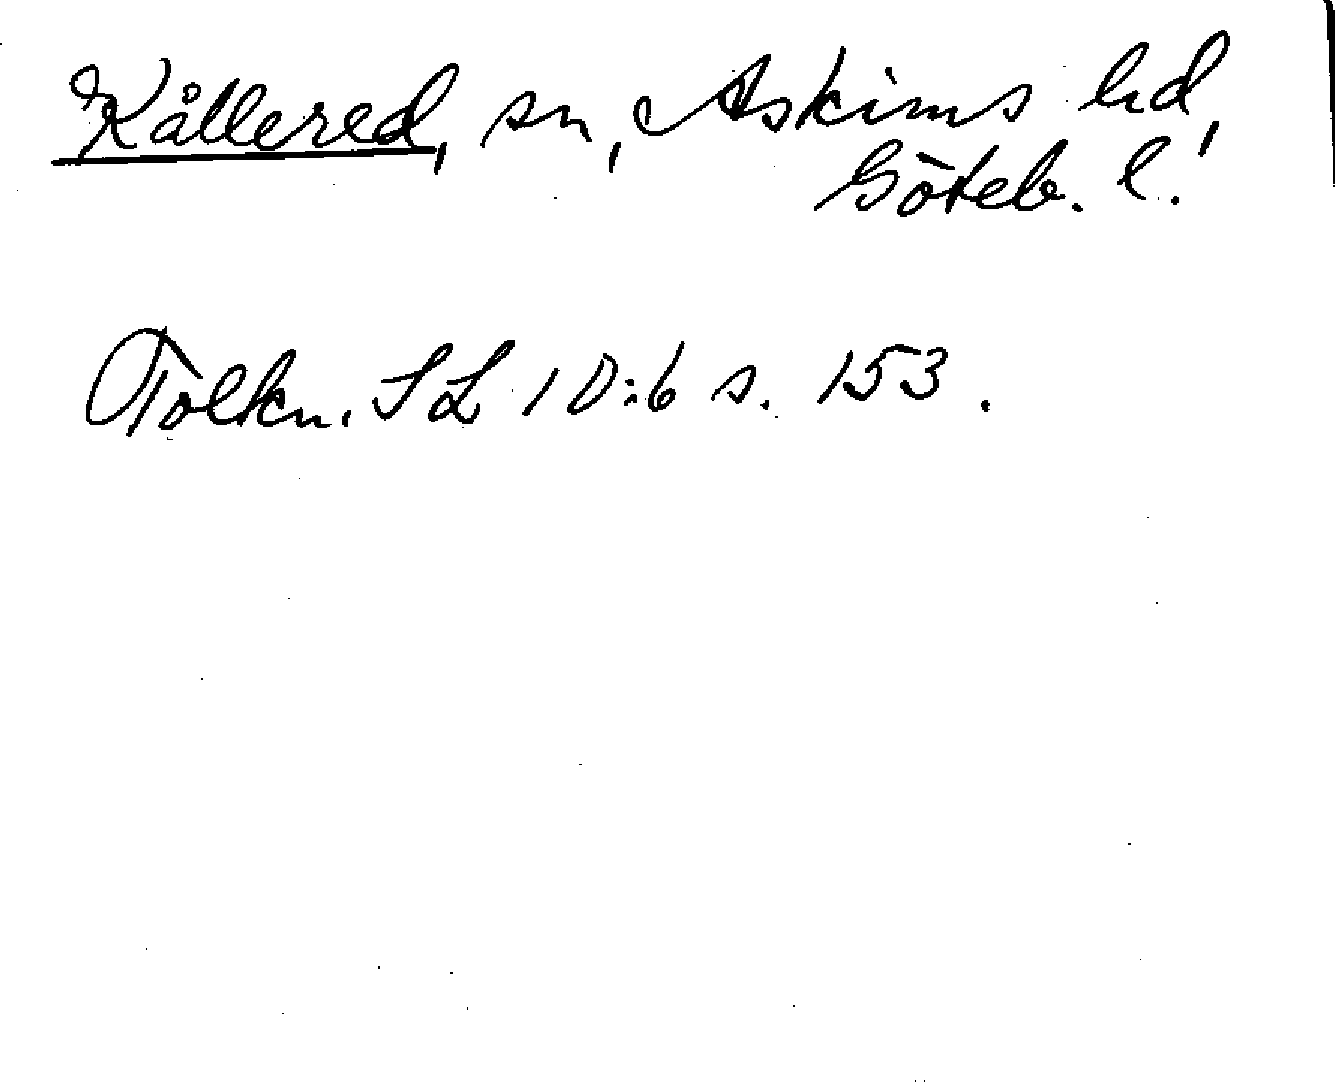 Kållered, sn, Askims hd,
Göteb. l.
Tolkn. SL 10:6 s. 153.